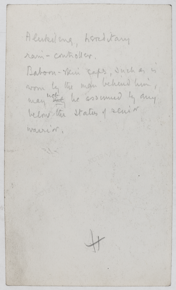 Alukileng, hereditary
rain-controller.
Baboon-skin cape, such as is
worn by the man behind him,
may not be assumed by any
below the status of senior
warrior.